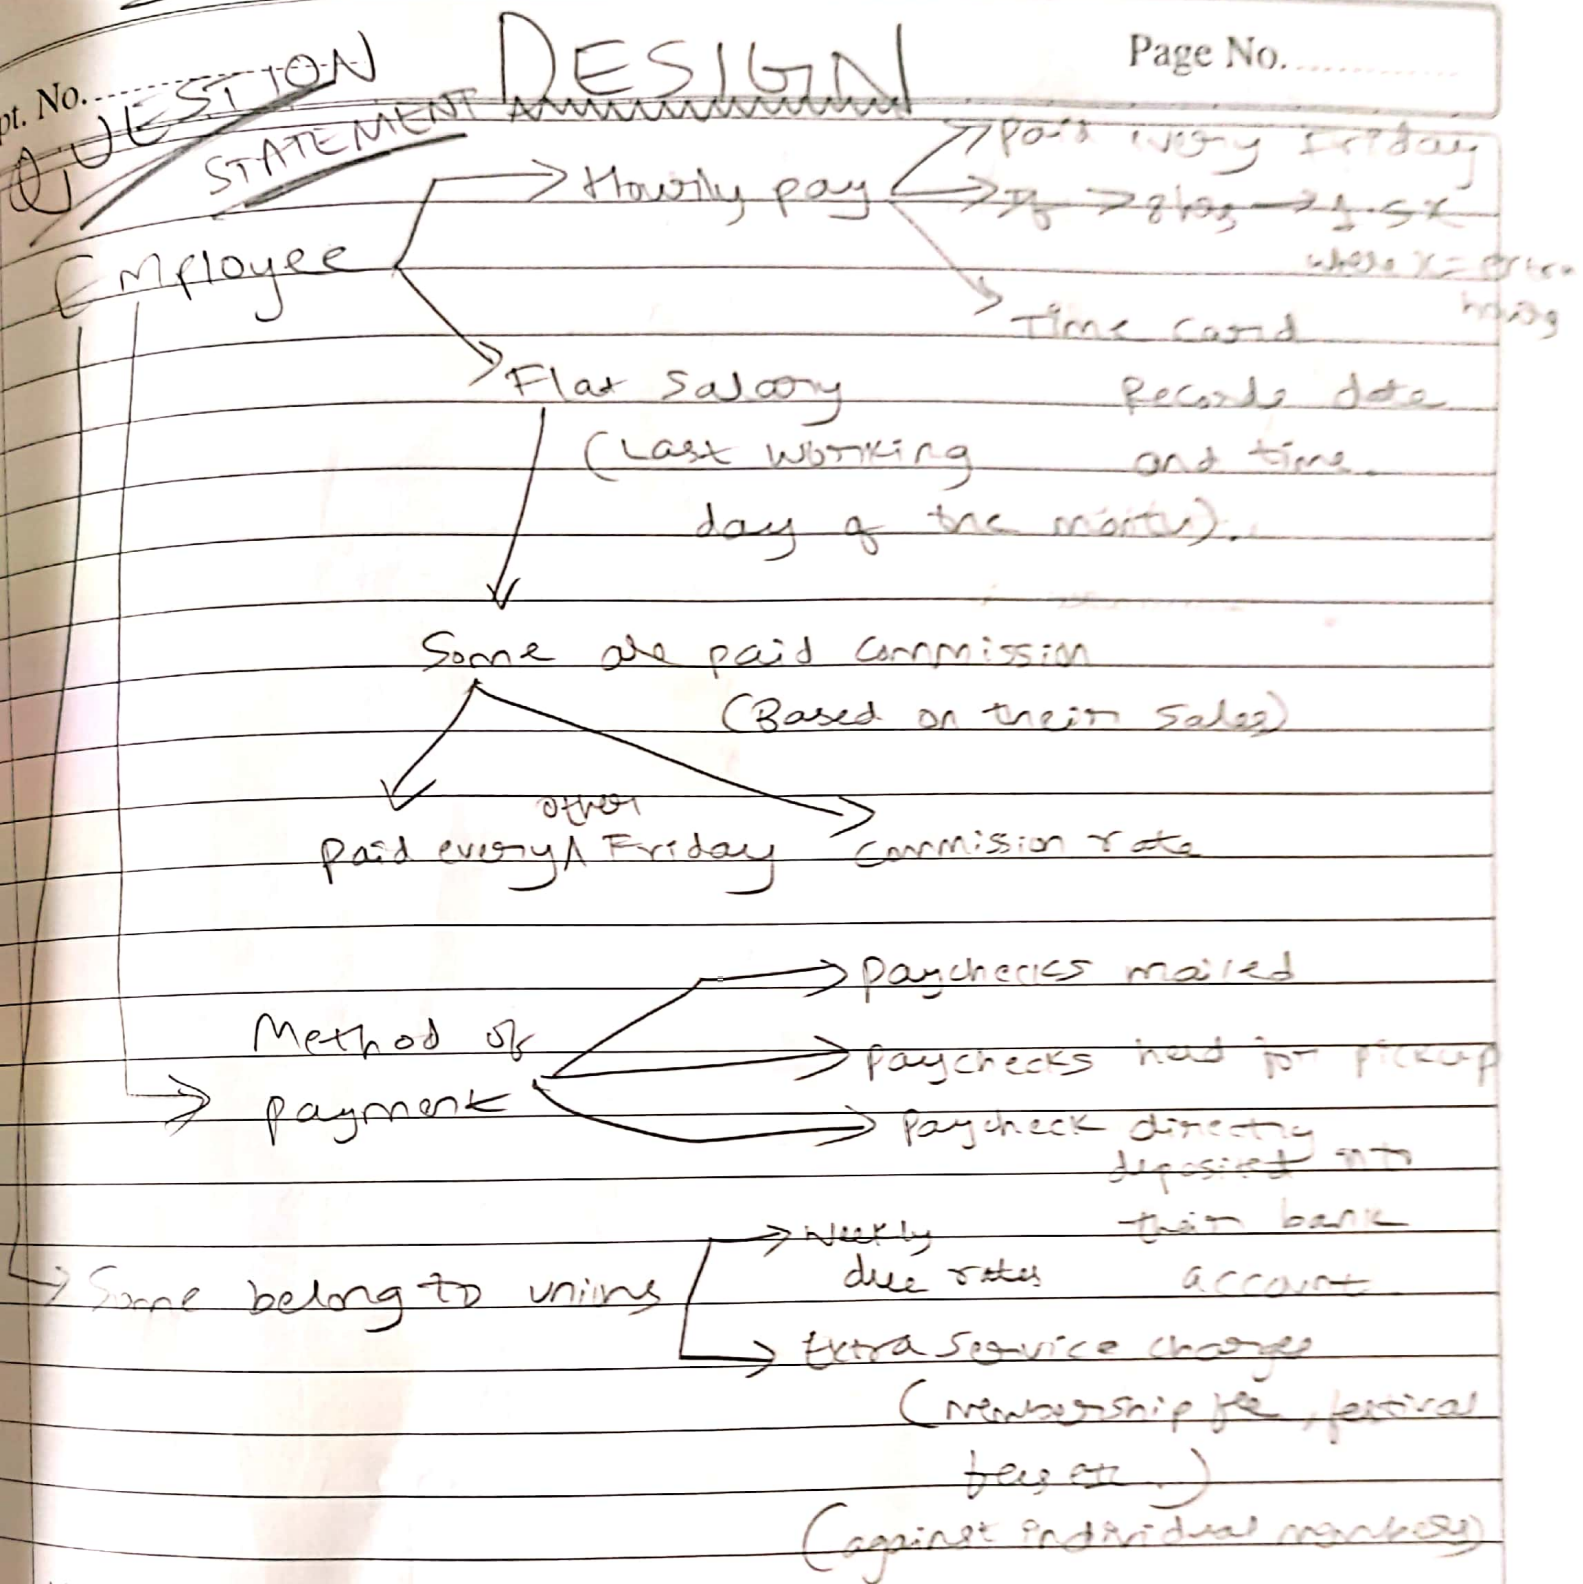 Page No.
pt. No.
QUESTION
STATEMENT
DESIGN
Paid every Friday
Hourly pay
If > 8 hrs → 1.5x
where x = extra
hours
Employee
Time card
Records date
and time.
Flat Salary
(Last working
day of the month).
Some are paid commission
(Based on their sales)
other
Paid every ^ Friday
Commission rate
Method of
payment
Paychecks mailed
Paychecks held for pickup
Paycheck directly
deposited into
their bank
account
Some belong to unions
Weekly
due rates
Extra service charges
(membership fee, festival
fees etc.)
(against individual members)